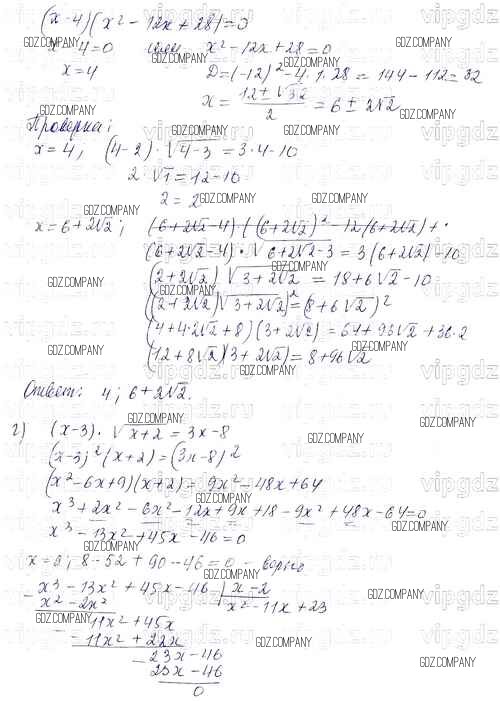 (x-4)(x²-12x+28)=0
x-4=0 или x²-12x+28=0
x=4 D=(-12)²-4·1·28=144-112=32
x=(12±√32)/2=6±2√2
Проверка:
x=4, (4-2)·√4-3=3·4-10
2·√1=12-10
2=2
x=6+2√2; (6+2√2-4)((6+2√2)²-12(6+2√2)+
(6+2√2-4)·√6+2√2-3=3(6+2√2)-10
(2+2√2)√3+2√2=18+6√2-10
((2+2√2)√3+2√2)²=(8+6√2)²
(4+4·2√2+8)(3+2√2)=64+96√2+36·2
(12+8√2)(3+2√2)=8+96√2
Ответ: 4; 6+2√2.
г) (x-3)·√x+2=3x-8
(x-3)²(x+2)=(3x-8)²
(x²-6x+9)(x+2)=9x²-48x+64
x³+2x²-6x²-12x+9x+18-9x²+48x-64=0
x³-13x²+45x-46=0
8-52+90-46=0 - верно
x³-13x²+45x-46 | x-2
x²-2x² x²-11x+23
11x²+45x
-11x²+22x
23x-46
23x-46
0
GDZ.COMPANY
vipgdz.ru